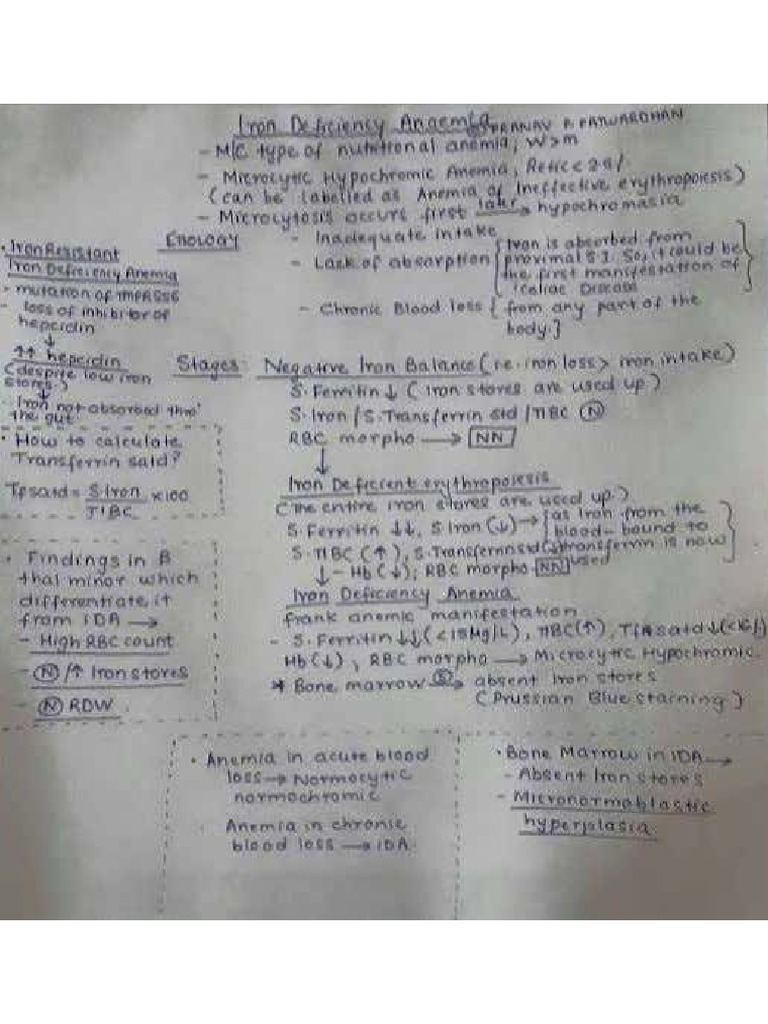 Iron Deficiency Anaemia
PRANAV R PATWARDHAN
- M/C type of nutritional anemia, W>m
- Microcytic Hypochromic Anemia, Retic<2%
(can be labelled as Anemia of Ineffective erythropoiesis)
- Microcytosis occurs first later → hypochromasia
Etiology
- Inadequate intake
- Lack of absorption { Iron is absorbed from
proximal S.I. So, it could be
the first manifestation of
Celiac Disease }
- Chronic Blood loss { from any part of the
body. }
• Iron Resistant
Iron Deficiency Anemia
- mutation of TMPRSS6
- loss of inhibitor of
hepcidin
↓
↑↑ hepcidin
(despite low iron
stores.)
↓
Iron not absorbed thro'
the gut.
Stages:
Negative Iron Balance (i.e. iron loss > iron intake)
S. Ferritin ↓ (Iron stores are used up)
S. Iron / S. Transferrin std / TIBC Ⓝ
RBC morpho → NN
↓
Iron Deficient erythropoiesis
(The entire iron stores are used up.)
S. Ferritin ↓↓, S Iron (↓) → { as Iron from the
blood - bound to
transferrin is now
used }
S. TIBC (↑), S. Transferrin std (↓)
↓ - Hb (↓), RBC morpho - NN
Iron Deficiency Anemia
frank anemic manifestation
- S. Ferritin ↓↓ (<15Mg/L), TIBC (↑), satd ↓
Hb (↓), RBC morpho → Microcytic Hypochromic.
* Bone marrow → absent Iron stores
(Prussian Blue staining)
• How to calculate
Transferrin satd?
satd = S. Iron / TIBC × 100
• Findings in B
thal minor which
differentiate it
from IDA →
- High RBC count
- Ⓝ/↑ Iron stores
- Ⓝ RDW.
• Anemia in acute blood
loss → Normocytic
normochromic
Anemia in chronic
blood loss → IDA
• Bone Marrow in IDA →
- Absent Iron stores
- Micronormoblastic
hyperplasia.